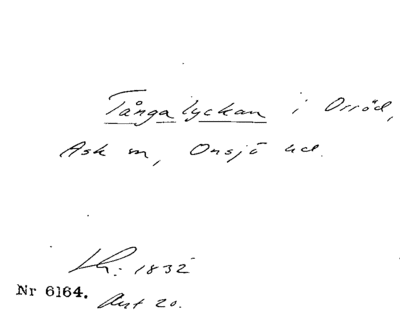 Tångalyckan i Orröd,
Ask sn, Onsjö hd.
Lh: 1832
Nr 6164. Akt 20.